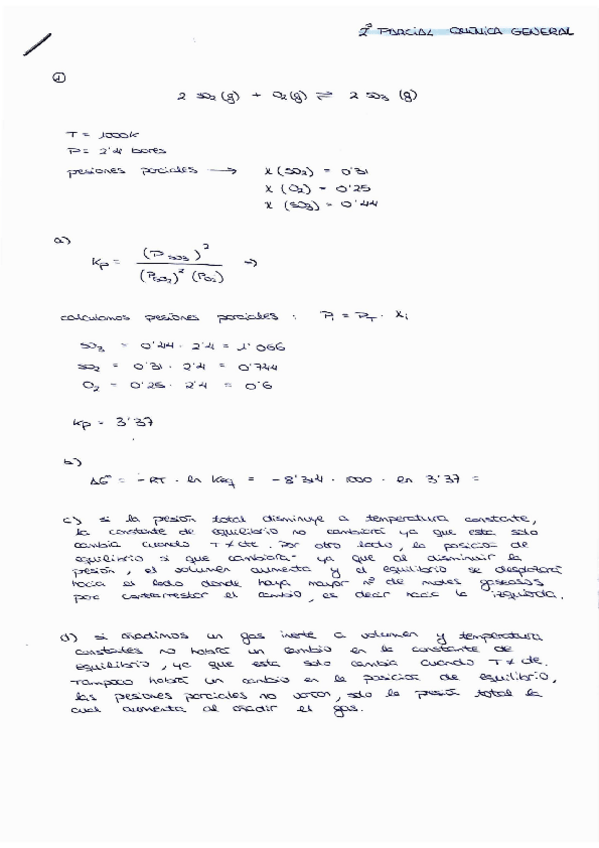 2º PARCIAL QUÍMICA GENERAL
①
2 SO2 (g) + O2 (g) ⇌ 2 SO3 (g)
T = 1000K
P = 2'4 bares
presiones parciales → X (SO2) = 0'31
X (O2) = 0'25
X (SO3) = 0'44
a)
Kp = (P SO3)² / (P SO2)² (P O2) →
calculamos presiones parciales : Pi = PT · Xi
SO3 = 0'44 · 2'4 = 1'066
SO2 = 0'31 · 2'4 = 0'744
O2 = 0'25 · 2'4 = 0'6
Kp = 3'37
b)
ΔGº = -RT · ln Keq = -8'314 · 1000 · ln 3'37 =
c) si la presión total disminuye a temperatura constante,
la constante de equilibrio no cambiará ya que esta solo
cambia cuando T ≠ cte. Por otro lado, la posición de
equilibrio si que cambiará ya que al disminuir la
presión, el volumen aumenta y el equilibrio se desplazará
hacia el lado donde haya mayor nº de moles gaseosos
para contrarrestar el cambio, es decir hacia la izquierda.
d) si añadimos un gas inerte a volumen y temperatura
constantes no habrá un cambio en la constante de
equilibrio, ya que esta solo cambia cuando T ≠ cte.
Tampoco habrá un cambio en la posición de equilibrio,
las presiones parciales no varían, solo la presión total la
cual aumenta al añadir el gas.